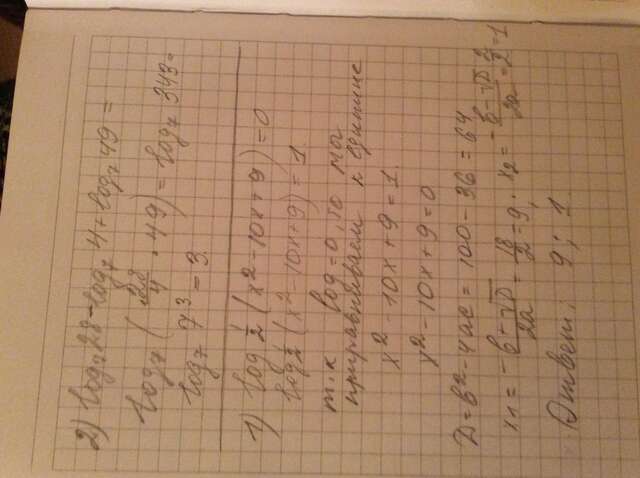 2) log₇28 - log₇4 + log₇49 =
log₇ (28/4 · 49) = log₇ 343 =
log₇ 7³ = 3.
1) log 1/2 (x² - 10x + 9) = 0
log 1/2 (x² - 10x + 9) = 1.
т.к log = 0, то мы
приравниваем к единице
x² - 10x + 9 = 1.
x² - 10x + 9 = 0
D = b² - 4ac = 100 - 36 = 64
x₁ = -b + √D / 2a = 18/2 = 9; x₂ = -b - √D / 2a = 2/2 = 1
Ответ. 9; 1